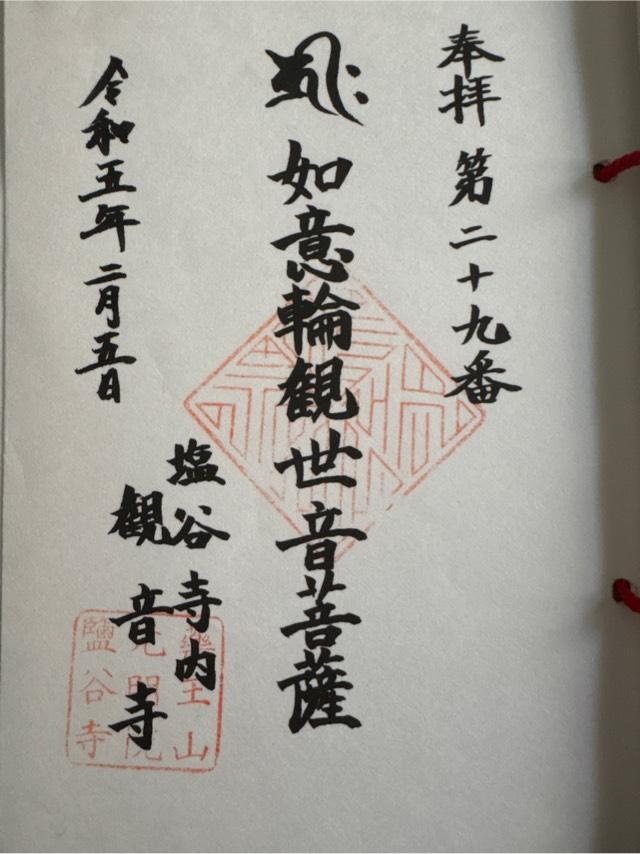 奉拝 第二十九番
如意輪観世音菩薩
塩谷寺内
観音寺
令和五年二月五日
鹽谷寺